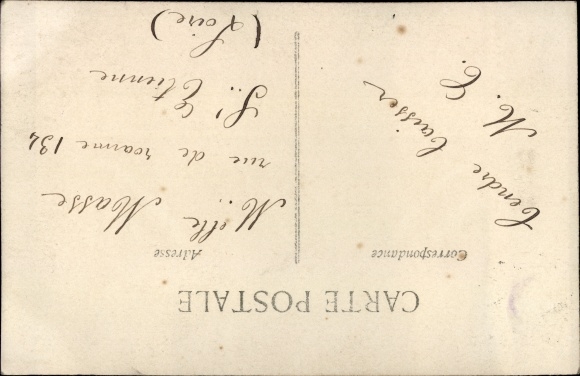 CARTE POSTALE
Correspondance
Tendre baiser
M. C.
Adresse
M.elle Masse
rue de roanne 134
St. Etienne
(Loire)